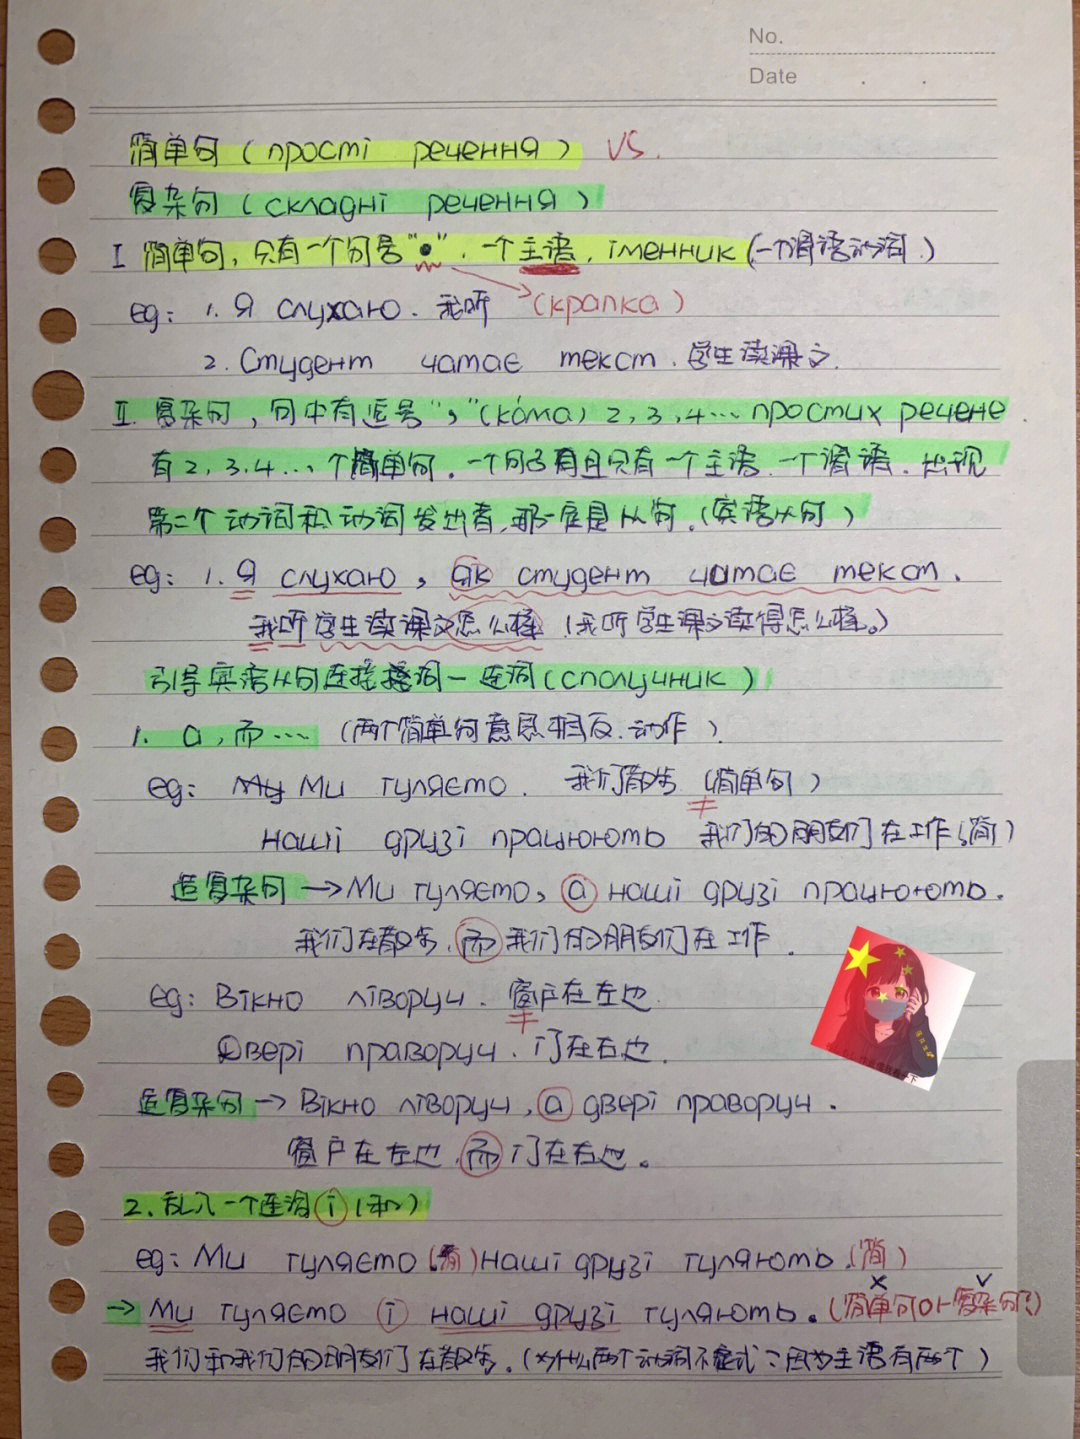 No.
Date
简单句（прості речення） VS.
复杂句（складні речення）
I 简单句，只有一个句号“•”．一个主语．іменник（一个谓语动词．）
eg: 1. Я слухаю. 我听 （крапка）
2. Студент чатає текст. 学生读课文．
II. 复杂句，句中有逗号“，”（кома）2, 3, 4… простих речене．
有2, 3, 4…，个简单句．一个句子有且只有一个主语．一个谓语．出现
第二个动词和动词发出者，那一定是从句．（宾语从句）
eg: 1. Я слухаю, як студент чатає текст.
我听学生读课文怎么样（我听学生课文读得怎么样。）
引导宾语从句连接词－连词（сполучник）
1. а，而…．（两个简单句意思相反．动作）
eg: Ми гуляємо. 我们散步（简单句）
≠
наші друзі працюють 我们的朋友们在工作（简）
造复杂句→ Ми гуляємо, а наші друзі працюють.
我们在散步，而我们的朋友们在工作．
eg: Вікно ліворуч. 窗户在左边．
≠
Двері праворуч. 门在右边．
造复杂句→ Вікно ліворуч, а двері праворуч.
窗户在左边，而门在右边。
2. 一个连词 і（和）
eg: Ми гуляємо（简）наші друзі гуляють.（简）
× ✓
→ Ми гуляємо і наші друзі гуляють.（简单句 or 复杂句？）
我们和我们的朋友们在散步．（为什么两个动词不？因为主语有两个）